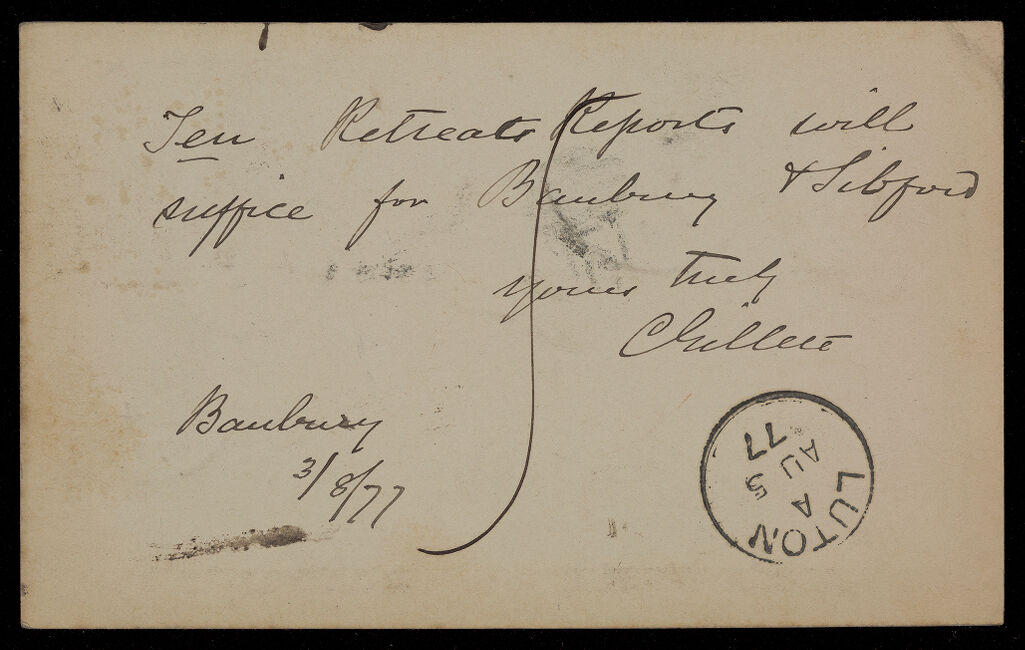 Ten Retreats Reports will
suffice for Banbury & Sibford
yours truly
C Gillett
Banbury
3/8/77
LUTON
A
AU 5
77